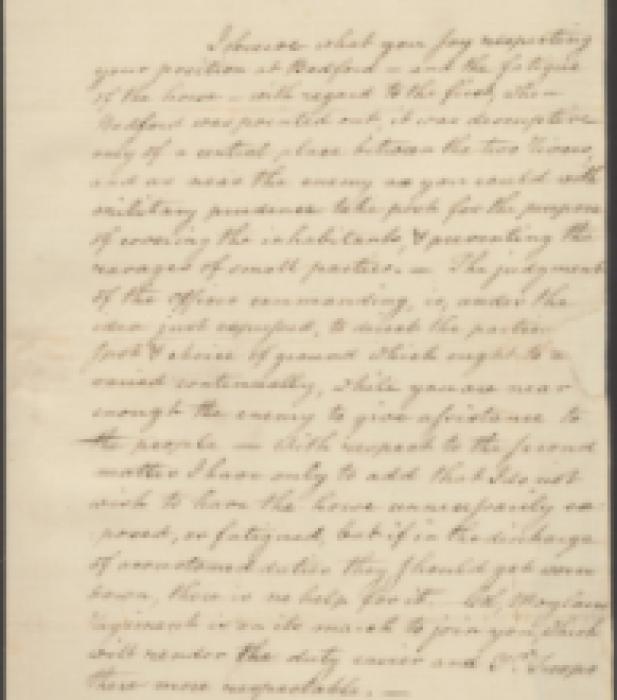 I know what you say respecting
your position at Bedford — and the fatigue
of the horse — with regard to the first, when
Bedford was pointed out, it was descriptive
only of a central place between the two rivers,
and as near the enemy as you could with
military prudence take post for the purpose
of covering the inhabitants, & preventing the
ravages of small parties. — The judgment
of the officer commanding, is, under the
idea just expressed, to direct the particu
spot & choice of ground which ought to
varied continually, while you are near
enough the enemy to give assistance to
the people — With respect to the second
matter I have only to add that I do not
wish to have the horse unnecessarily ex
posed, or fatigued, but if in the discharge
of accustomed duties they should get worn
down, there is no help for it. Moylans
regiment is on its march to join you, which
will render the duty easier and Troops
there more respectable. —